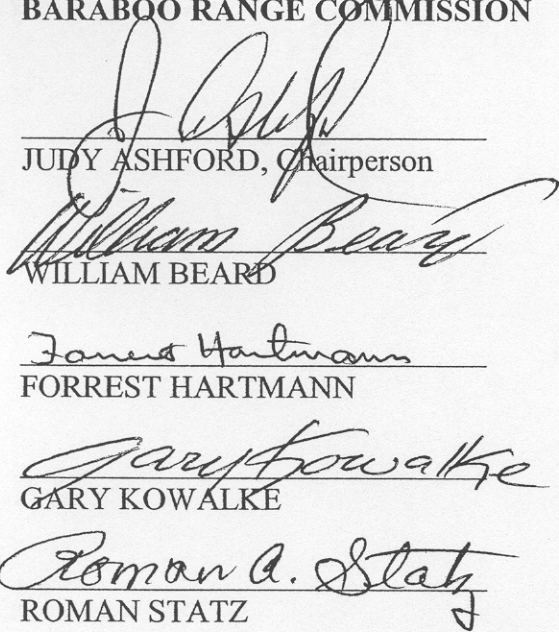 BARABOO RANGE COMMISSION
J Ashford
JUDY ASHFORD, Chairperson
William Beard
WILLIAM BEARD
Forrest Hartmann
FORREST HARTMANN
Gary Kowalke
GARY KOWALKE
Roman A. Statz
ROMAN STATZ